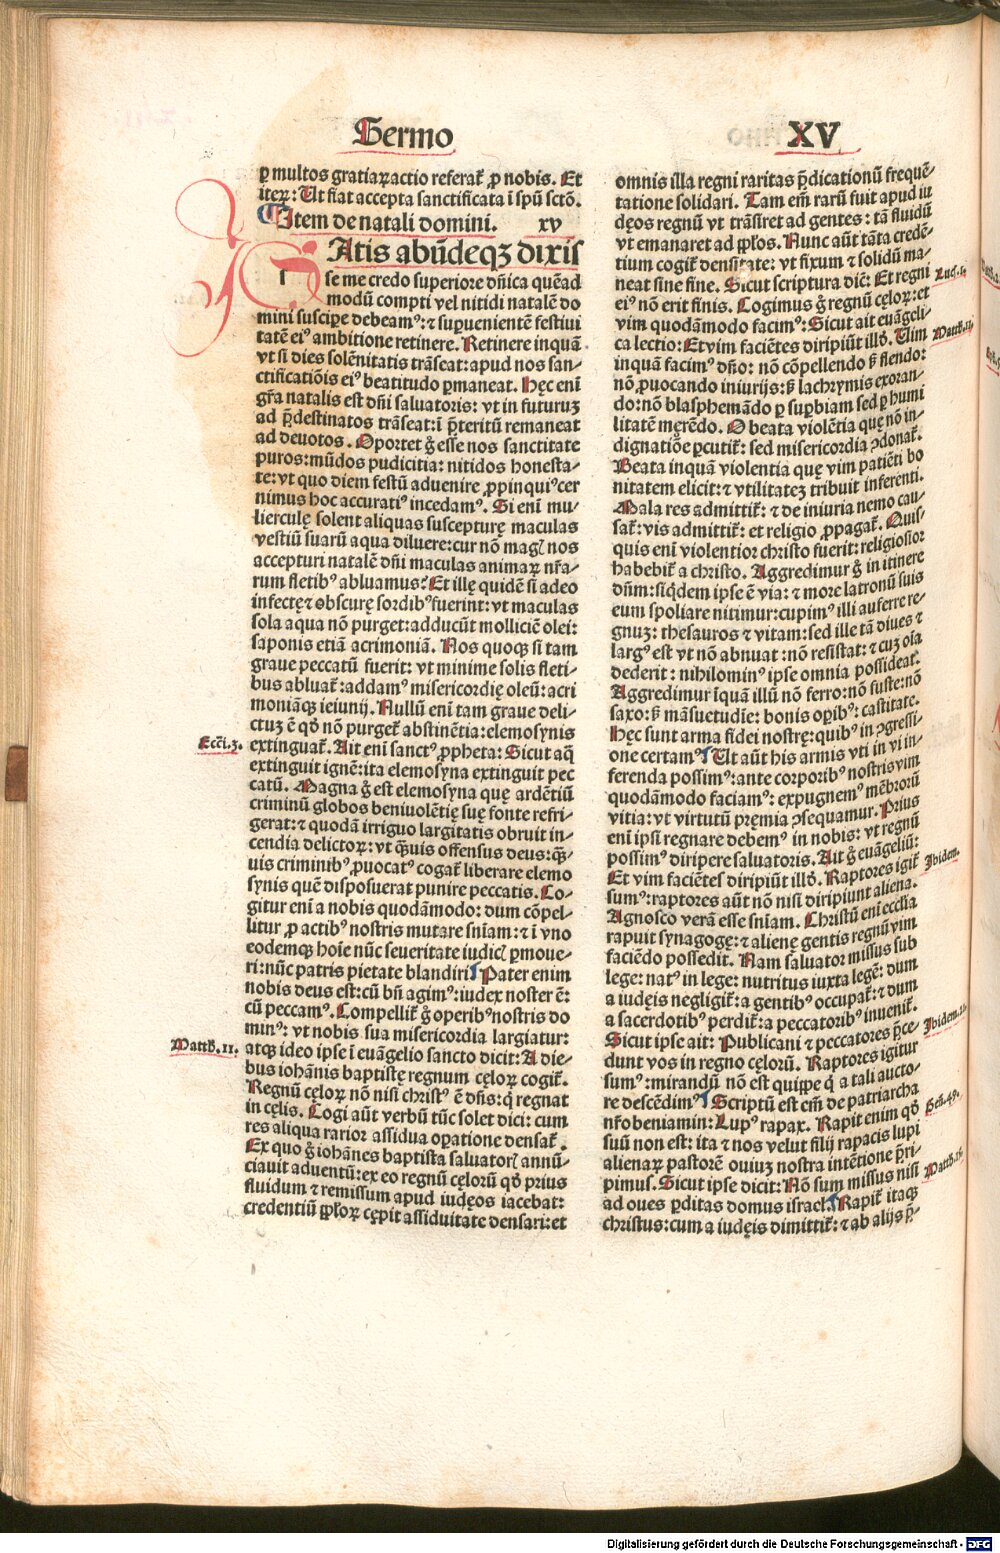 Sermo
XV
ꝑ multos gratiaꝝ actio referat᷑ ꝓ nobis. Et
iteꝝ: Ut fiat accepta sanctificata ī spū sctō.
Item de natali domini. xv
Atis abūdeqꝫ dixis
se me credo superiore dn̄ica quēad
modū compti vel nitidi natalē do
mini suscipe debeamꝰ: ⁊ supuenientē festiui
tatē eiꝰ ambitione retinere. Retinere inquā
vt si dies solēnitatis trāseat: apud nos san⸗
ctificatiōis eiꝰ beatitudo ꝑmaneat. Hęc enī
gr̄a natalis est dn̄i saluatoris: vt in futuruꝫ
ad p̄destinatos trāseat: ī p̄teritū remaneat
ad deuotos. Oportet g̊ esse nos sanctitate
puros: mūdos pudicitia: nitidos honesta⸗
te: vt quo diem festū aduenire ꝓpinquiꝰ cer
nimus hoc accuratiꝰ incedamꝰ. Si enī mu⸗
lierculę solent aliquas suscepturę maculas
vestiū suarū aqua diluere: cur nō magꝭ nos
accepturi natalē dn̄i maculas animaꝝ nr̄a⸗
rum fletibꝰ abluamus? Et illę quidē si adeo
infectę ⁊ obscurę sordibꝰ fuerint: vt maculas
sola aqua nō purget: adducūt molliciē olei:
saponis etiā acrimoniā. Nos quoqꝫ si tam
graue peccatū fuerit: vt minime solis fleti⸗
bus abluat᷑: addamꝰ misericordię oleū: acri
moniāqꝫ ieiunij. Nullū enī tam graue deli⸗
ctuꝫ ē qd̛ nō purget᷑ abstinētia: elemosynis
Ecci.3.
extinguat᷑. Ait enī sanctꝰ ꝓpheta: Sicut aq̄
extinguit ignē: ita elemosyna extinguit pec
catū. Magna g̊ est elemosyna quę ardētiū
criminū globos beniuolētię suę fonte refri⸗
gerat: ⁊ quodā irriguo largitatis obruit in⸗
cendia delictoꝝ: vt q̄uis offensus deus: q̄⸗
uis criminibꝰ ꝓuocatꝰ cogat᷑ liberare elemo
synis quē disposuerat punire peccatis. Co⸗
gitur enī a nobis quodāmodo: dum cōpel⸗
litur ꝓ actibꝰ nostris mutare sn̄iam: ⁊ ī vno
eodemqꝫ hoīe nūc seueritate iudicꝭ ꝑmoue⸗
ri: nūc patris pietate blandiri Pater enim
nobis deus est: cū bn̄ agimꝰ: iudex noster ē:
cū peccamꝰ. Compellit᷑ g̊ operibꝰ nostris do
minꝰ: vt nobis sua misericordia largiatur:
Matth. 11.
atqꝫ ideo ipse ī euāgelio sancto dicit: A die⸗
bus iohānis baptistę regnum cęloꝝ cogit᷑.
Regnū cęloꝝ nō nisi christꝰ ē dn̄s: q̄ regnat
in cęlis. Cogi aūt verbū tūc solet dici: cum
res aliqua rarior assidua oꝑatione densat᷑.
Ex quo g̊ iohānes baptista saluatorꝭ annū⸗
ciauit aduentū: ex eo regnū cęlorū qd̛ prius
fluidum ⁊ remissum apud iudęos iacebat:
credentiū pp̄loꝝ cępit assiduitate densari: et
omnis illa regni raritas p̄dicationū frequē⸗
tatione solidari. Tam em̄ rarū fuit apud iu
dęos regnū vt trāsiret ad gentes: tā fluidū
vt emanaret ad pp̄los. Nunc aūt tāta credē⸗
tium cogit᷑ densitate: vt fixum ⁊ solidū ma⸗
neat sine fine. Sicut scriptura dic̄: Et regni
Luc.1.
eiꝰ nō erit finis. Cogimus g̊ regnū cęloꝝ: et
vim quodāmodo facimꝰ: Sicut ait euāgeli⸗
ca lectio: Et vim faciētes diripiūt illd̛. Uim
Matth.11.
inquā facimꝰ dn̄o: nō cōpellendo ß flendo:
nō ꝓuocando iniurijs: ß lachrymis exoran⸗
do: nō blasphemādo ꝑ supbiam sed ꝑ humi
litatē męrēdo. O beata violētia quę nō in⸗
dignatiōe ꝑcutit᷑: sed misericordia ꝯdonat᷑.
Beata inquā violentia quę vim patiēti bo
nitatem elicit: ⁊ vtilitateꝫ tribuit inferenti.
Mala res admittit᷑: ⁊ de iniuria nemo cau⸗
sat᷑: vis admittit᷑: et religio ꝓpagat᷑. Quis⸗
quis enī violentior christo fuerit: religiosior
habebit᷑ a christo. Aggredimur g̊ in itinere
dn̄m: siqđem ipse ē via: ⁊ more latronū suis
eum spoliare nitimur: cupimꝰ illi auferre re⸗
gnuꝫ: thesauros ⁊ vitam: sed ille tā diues ⁊
largꝰ est vt nō abnuat: nō resistat: ⁊ cuꝫ oīa
dederit: nihilominꝰ ipse omnia possideat.
Aggredimur īquā illū nō ferro: nō fuste: nō
saxo: ß māsuetudīe: bonis opibꝰ: castitate.
Hęc sunt arma fidei nostrę: quibꝰ in ꝯgressi⸗
one certamꝰ Ut aūt his armis vti in vi in⸗
ferenda possimꝰ: ante corporibꝰ nostris vim
quodāmodo faciamꝰ: expugnemꝰ mēbrorū
vitia: vt virtutū pręmia ꝯsequamur. Prius
enī ipsi regnare debemꝰ in nobis: vt regnū
possimꝰ diripere saluatoris. Ait g̊ euāgeliū:
Ibidem.
Et vim faciētes diripiūt illd̛. Raptores igit᷑
sumꝰ: raptores aūt nō nisi diripiunt aliena.
Agnosco verā esse sn̄iam. Christū enī ecclīa
rapuit synagogę: ⁊ alienę gentis regnū vim
faciēdo possedit. Nam saluator missus sub
lege: natꝰ in lege: nutritus iuxta legē: dum
a iudęis negligit᷑: a gentibꝰ occupat᷑: ⁊ dum
a sacerdotibꝰ perdit᷑: a peccatoribꝰ inuenit᷑.
Sicut ipse ait: Publicani ⁊ peccatores p̄ce⸗
dunt vos in regno cęlorū. Raptores igitur
sumꝰ: mirandū nō est quippe q̄ a tali aucto⸗
re descēdimꝰ Scriptū est em̄ de patriarcha
Gen.49.
nr̄o beniamin: Lupꝰ rapax. Rapit enim qd̛
suū non est: ita ⁊ nos velut filij rapacis lupi
alienaꝝ pastorē ouiuꝫ nostra intētione p̄ri⸗
pimus. Sicut ipse dicit: Nō sum missus nisi
ad oues ꝑditas domus israel. Rapit᷑ itaqꝫ
christus: cum a iudęis dimittit᷑: ⁊ ab alijs p̄⸗
Digitalisierung gefördert durch die Deutsche Forschungsgemeinschaft - DFG